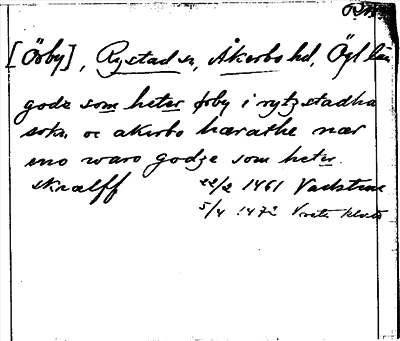 [Örby], Rystad sn, Åkerbo hd, Ögl län
godz som heter ørby i rytzstadha
sokn oc akerbo hærathe nær
eno waro godze som heter
skælff 22/2 1461 Vadstena
5/4 1472 Vreta kloster